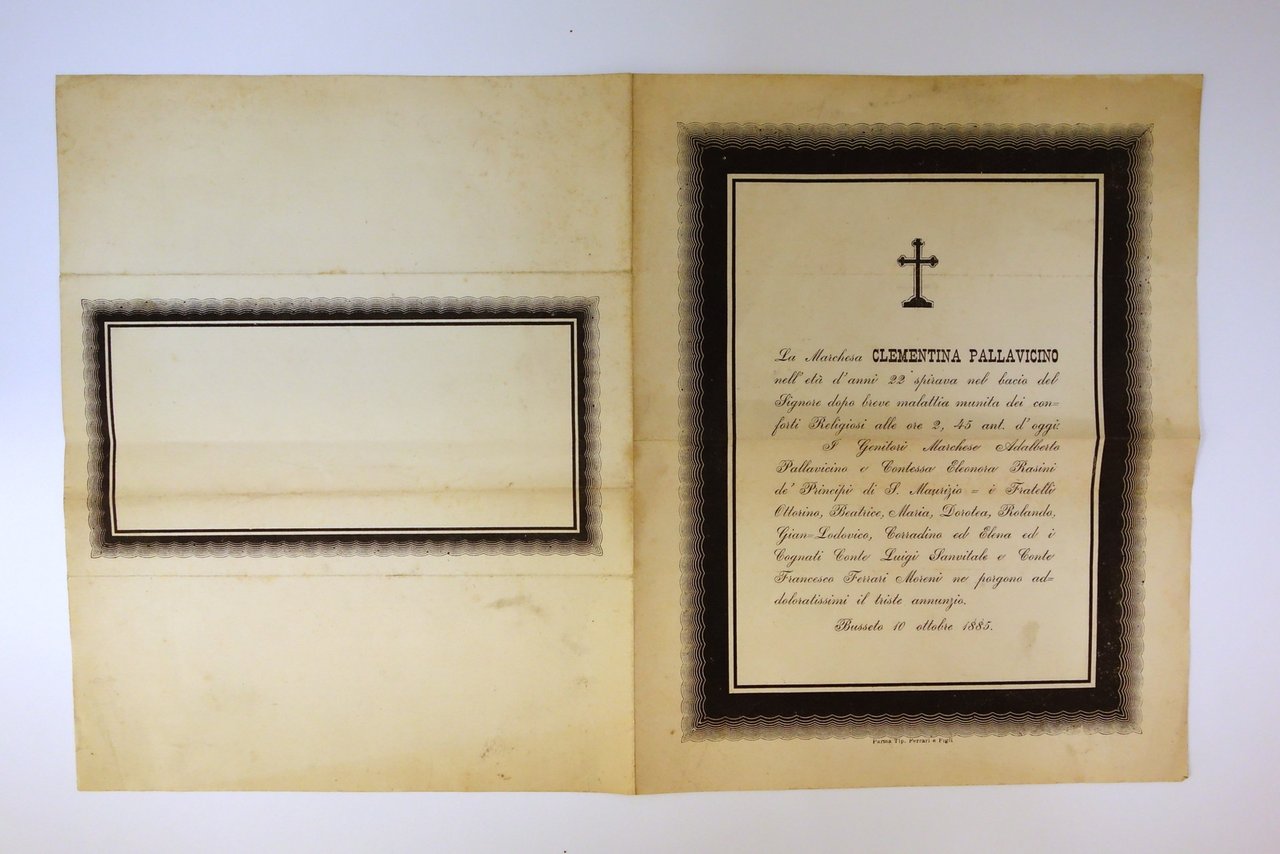 La Marchesa CLEMENTINA PALLAVICINO
nell' età d'anni 22 spirava nel bacio del
Signore dopo breve malattia munita dei con=
forti Religiosi alle ore 2, 45 ant. d'oggi.
I Genitori Marchese Adalberto
Pallavicino e Contessa Eleonora Rasini
de' Principi di S. Maurizio = i Fratelli
Ottorino, Beatrice, Maria, Dorotea, Rolando,
Gian=Lodovico, Corradino ed Elena ed i
Cognati Conte Luigi Sanvitale e Conte
Francesco Ferrari Moreni ne porgono ad=
doloratissimi il triste annunzio.
Busseto 10 ottobre 1885.
Parma Tip. Ferrari e Figli